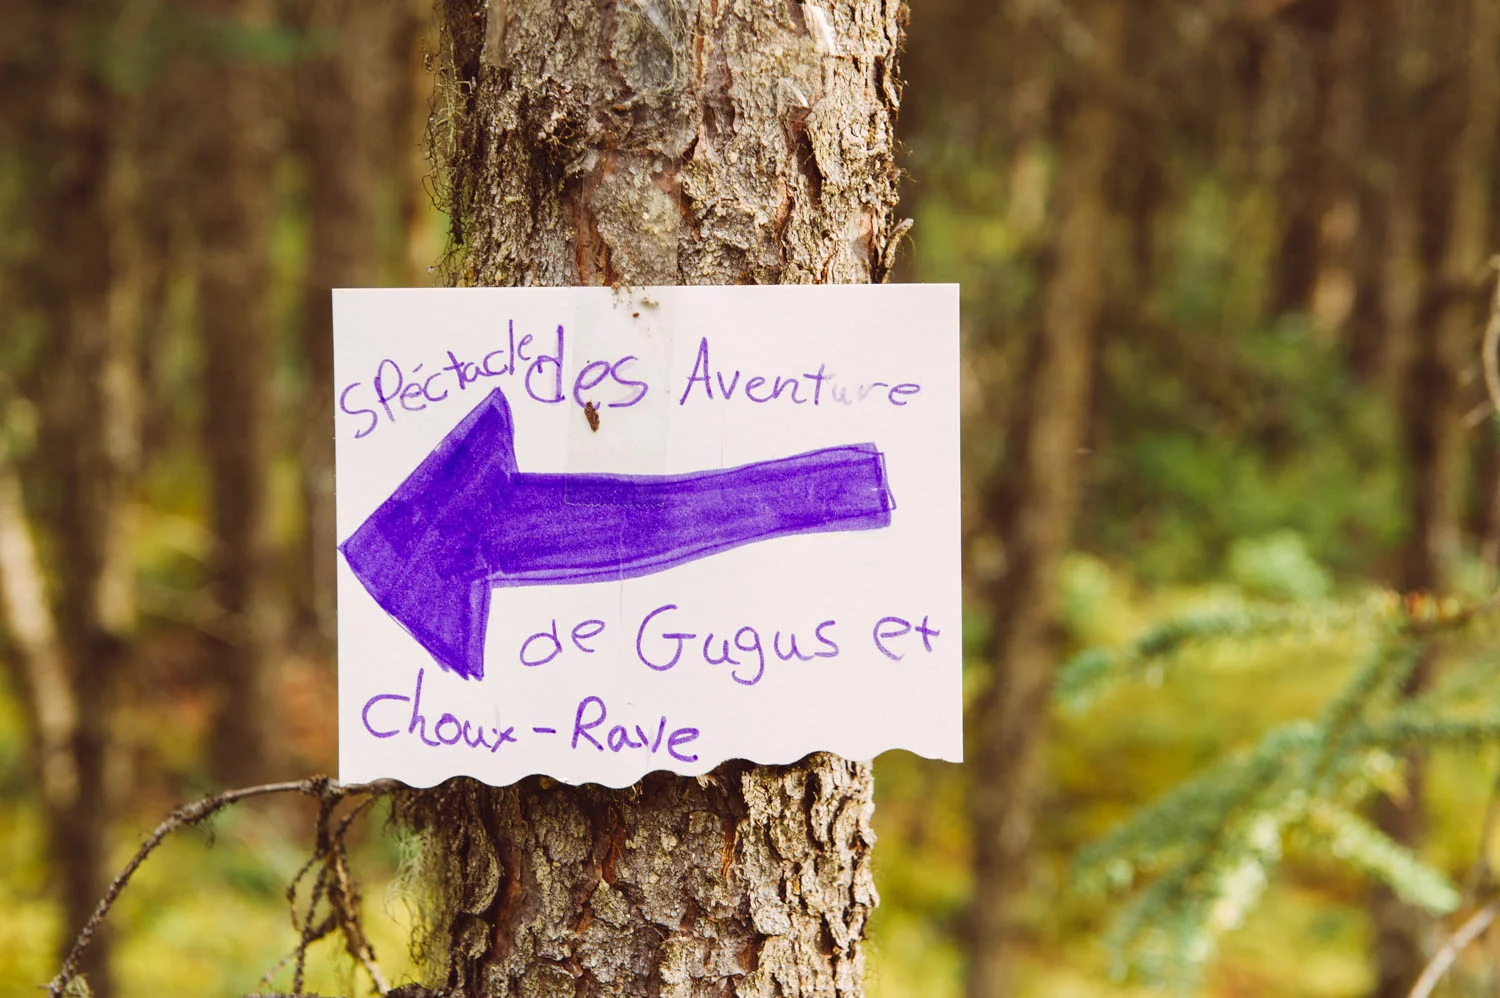 Spéctacle des Aventure
de Gugus et
Choux-Rave